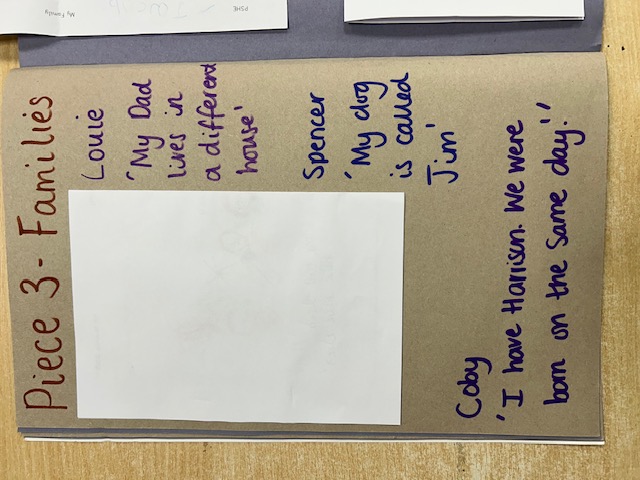 PSHE
My Family
Piece 3 - Families
Louie
'My Dad
lives in
a different
house'
Spencer
'My dog
is called
Jim'
Coby
'I have Harrison. We were
born on the same day.'